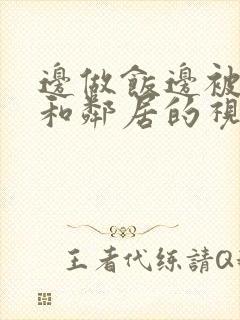 邊做飯邊被
和鄰居的視
王者代练請Q